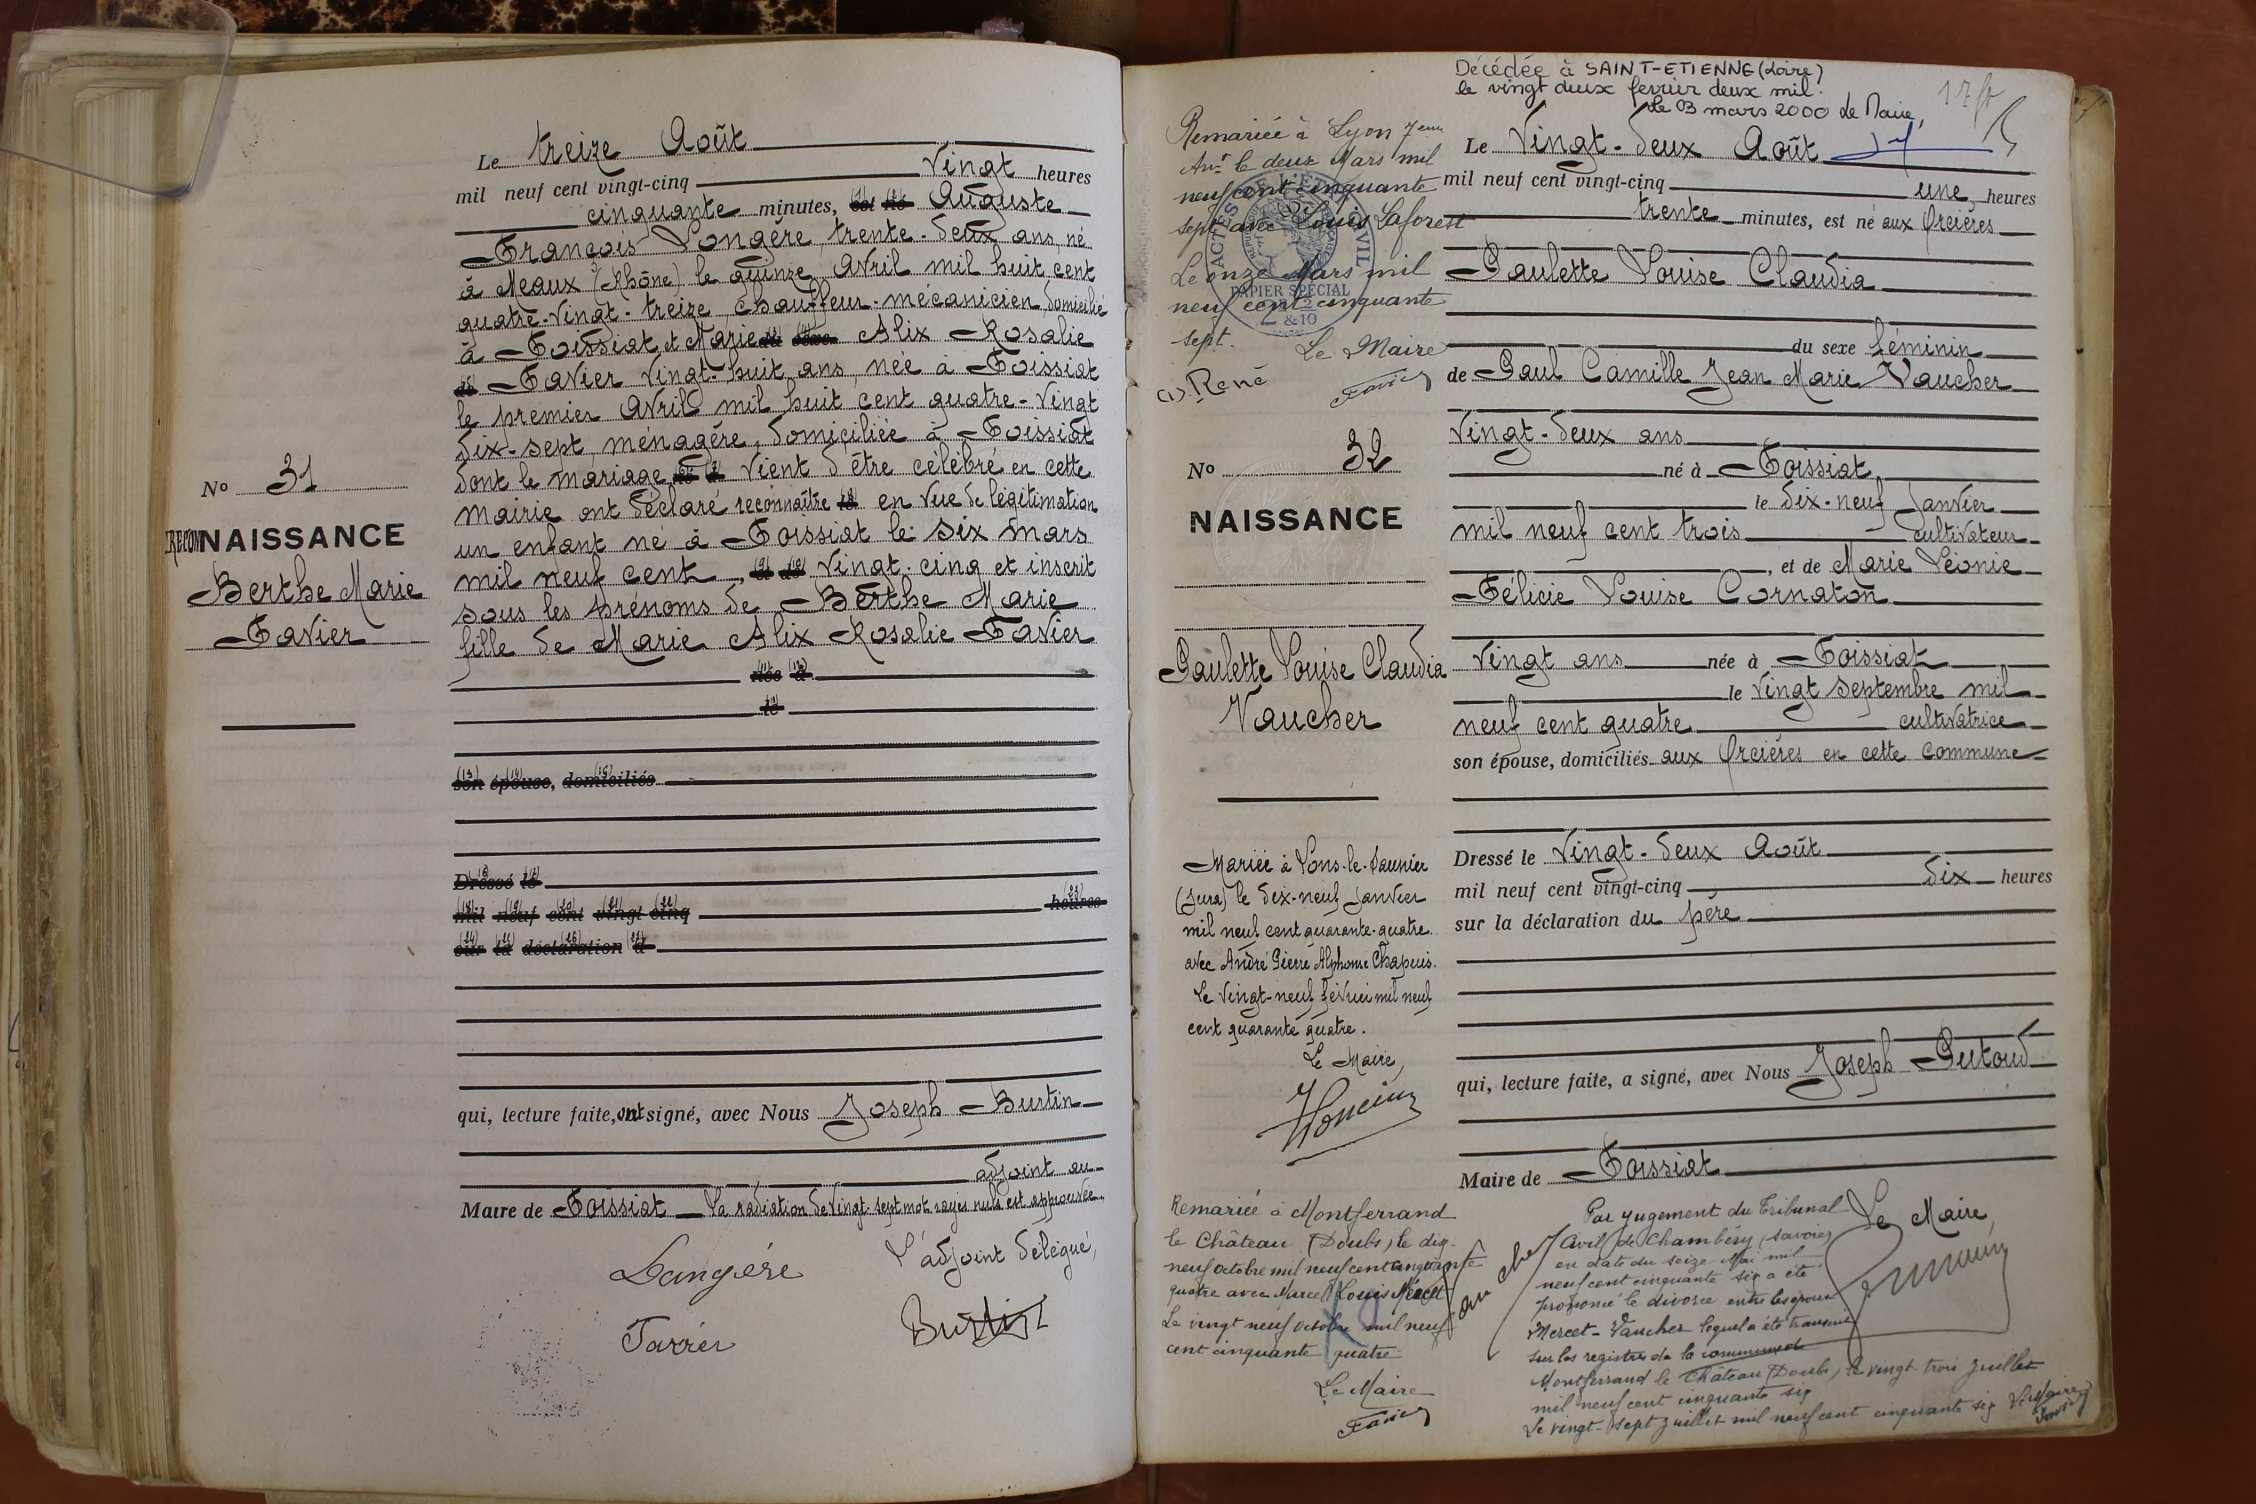 Le treize Août
mil neuf cent vingt-cinq vingt heures
cinquante minutes, est né Auguste
François Longère, trente-deux ans, né
à Meaux (Rhône) le quinze Avril mil huit cent
quatre-vingt-treize chauffeur-mécanicien, domicilié
à Foissiat et Marie du sexe Alix Rosalie
de Favier vingt-huit ans, née à Foissiat
le premier Avril mil huit cent quatre-vingt
dix-sept, ménagère, domiciliée à Foissiat
dont le mariage vient d'être célébré en cette
mairie ont déclaré reconnaître en vue de légitimation
un enfant né à Foissiat le six mars
mil neuf cent vingt-cinq et inscrit
sous les prénoms de Berthe Marie
fille de Marie Alix Rosalie Favier
née à
le
son épouse, domiciliés
Dressé le
mil neuf cent vingt cinq heures
sur la déclaration d
qui, lecture faite, ont signé, avec Nous Joseph Burtin
adjoint au
Maire de Foissiat La radiation de vingt-sept mots rayés nuls est approuvée
L'adjoint délégué,
Longère
Burtin
Favier
No 31
RECONNAISSANCE
Berthe Marie
Favier
Décédée à SAINT-ETIENNE (Loire)
le vingt deux fevrier deux mil.
Le 03 mars 2000 Le Maire,
17 fr
Remariée à Lyon 7eme
Arr.t le deux Mars mil
neuf cent cinquante
sept avec Louis Laforest
Le onze Mars mil
neuf cent cinquante
sept. Le Maire
(1). René Favier
ACTES DE L'ETAT CIVIL
PAPIER SPÉCIAL
2 & 10
No 32
NAISSANCE
Paulette Louise Claudia
Vaucher
Mariée à Lons-le-Saunier
(Jura) le dix-neuf Janvier
mil neuf cent quarante-quatre
avec André Pierre Alphonse Chapuis.
Le vingt-neuf février mil neuf
cent quarante quatre.
Le Maire,
Remariée à Montferrand
le Château (Doubs) le dix-
neuf octobre mil neuf cent cinquante
quatre avec Marcel Louis Mercet
Le vingt neuf octobre mil neuf
cent cinquante quatre
Le Maire
Favier
Le Vingt-deux Août
mil neuf cent vingt-cinq une heures
trente minutes, est né aux Orcières
Paulette Louise Claudia
du sexe féminin
de Paul Camille Jean Marie Vaucher
vingt-deux ans
né à Foissiat
le dix-neuf Janvier
mil neuf cent trois cultivateur
, et de Marie Léonie
Félicie Louise Cornaton
vingt ans née à Foissiat
le vingt septembre mil
neuf cent quatre cultivatrice
son épouse, domiciliés aux Orcières en cette commune
Dressé le vingt-deux Août
mil neuf cent vingt-cinq dix heures
sur la déclaration du père
qui, lecture faite, a signé, avec Nous Joseph Putoud
Maire de Foissiat
Le Maire,
Vaucher
Par jugement du Tribunal
Civil de Chambéry, Savoie,
en date du seize Mai mil
neuf cent cinquante six a été
prononcé le divorce entre les époux
Mercet-Vaucher lequel a été transcrit
sur les registres de la commune de
Montferrand le Château (Doubs) le vingt-trois Juillet
mil neuf cent cinquante six
Le vingt-sept Juillet mil neuf cent cinquante six Le Maire
Favier